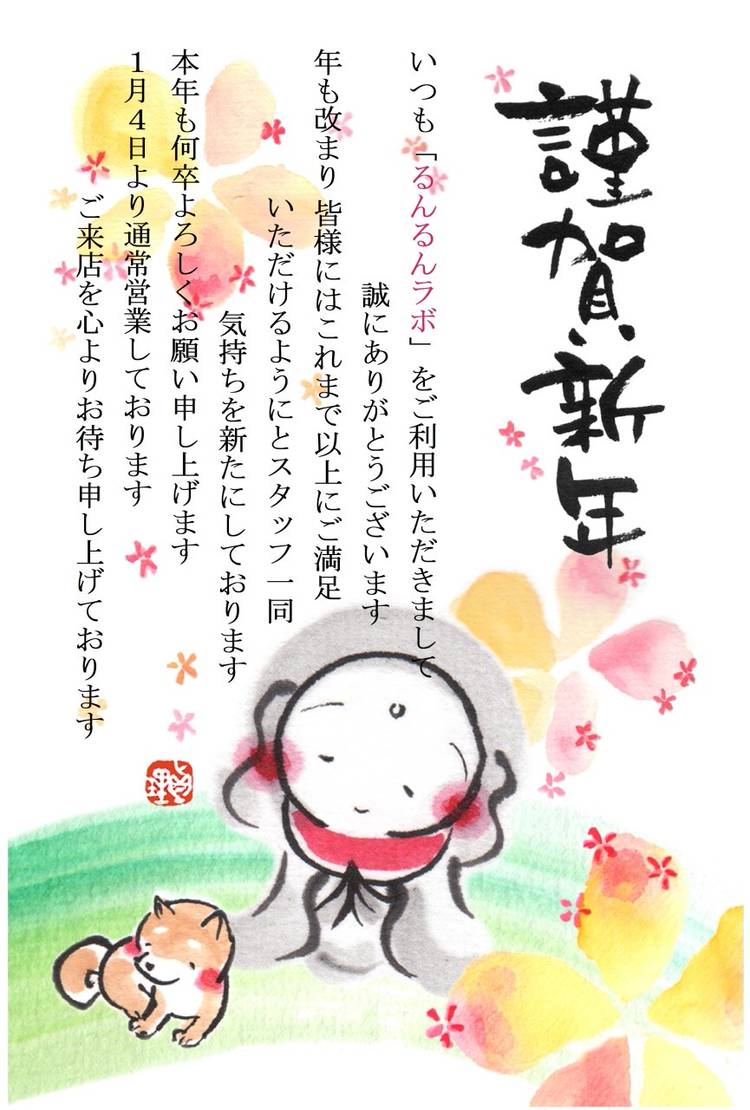 謹賀新年
いつも「るんるんラボ」をご利用いただきまして
誠にありがとうございます
年も改まり 皆様にはこれまで以上にご満足
いただけるようにとスタッフ一同
気持ちを新たにしております
本年も何卒よろしくお願い申し上げます
１月４日より通常営業しております
ご来店を心よりお待ち申し上げております